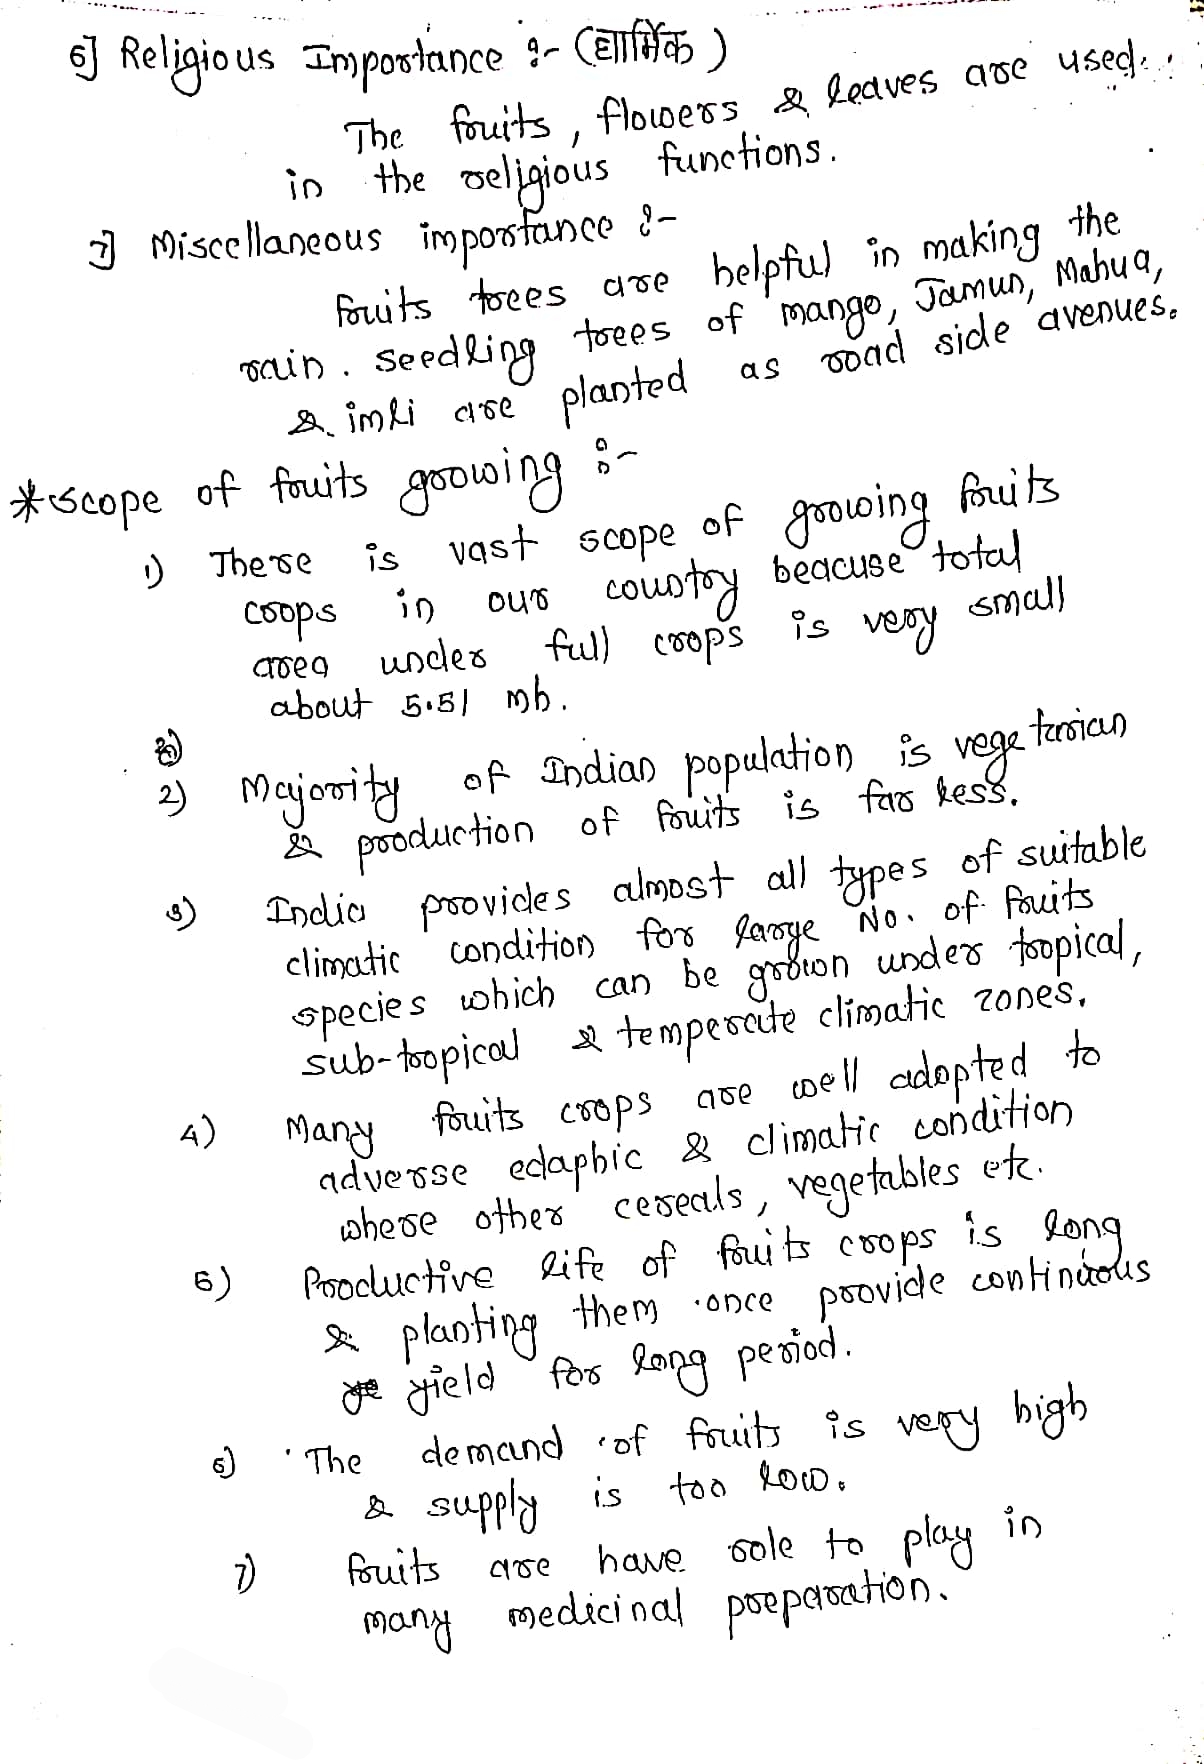 6] Religious Importance :- (धार्मिक)
The fruits, flowers & leaves are used
in the religious functions.
7] Miscellaneous importance :-
fruits trees are helpful in making the
rain. seedling trees of mango, Jamun, Mahua,
& imli are planted as road side avenues.
*scope of fruits growing :-
1) There is vast scope of growing fruits
crops in our country beacuse total
area under full crops is very small
about 5.51 mh.
2) Majority of Indian population is vegetarian
& production of fruits is far less.
3) India provides almost all types of suitable
climatic condition for large No. of fruits
species which can be grown under tropical,
sub-tropical & temperate climatic zones.
4) Many fruits crops are well adopted to
adverse edaphic & climatic condition
where other cereals, vegetables etc.
5) Productive life of fruits crops is long
& planting them once provide continuous
yield for long period.
6) The demand of fruits is very high
& supply is too low.
7) fruits are have role to play in
many medicinal preparation.